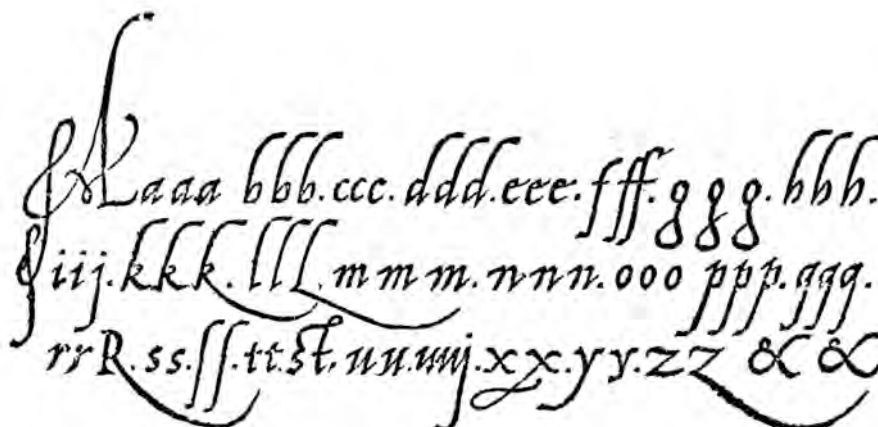 A aaa bbb.ccc.ddd.eee.fff.ggg.hhh.
iij.kkk.lll.mmm.nnn.ooo ppp.qqq.
rrR.ss.ſſ.tt.st.uu.uuj.xx.yy.zz & &